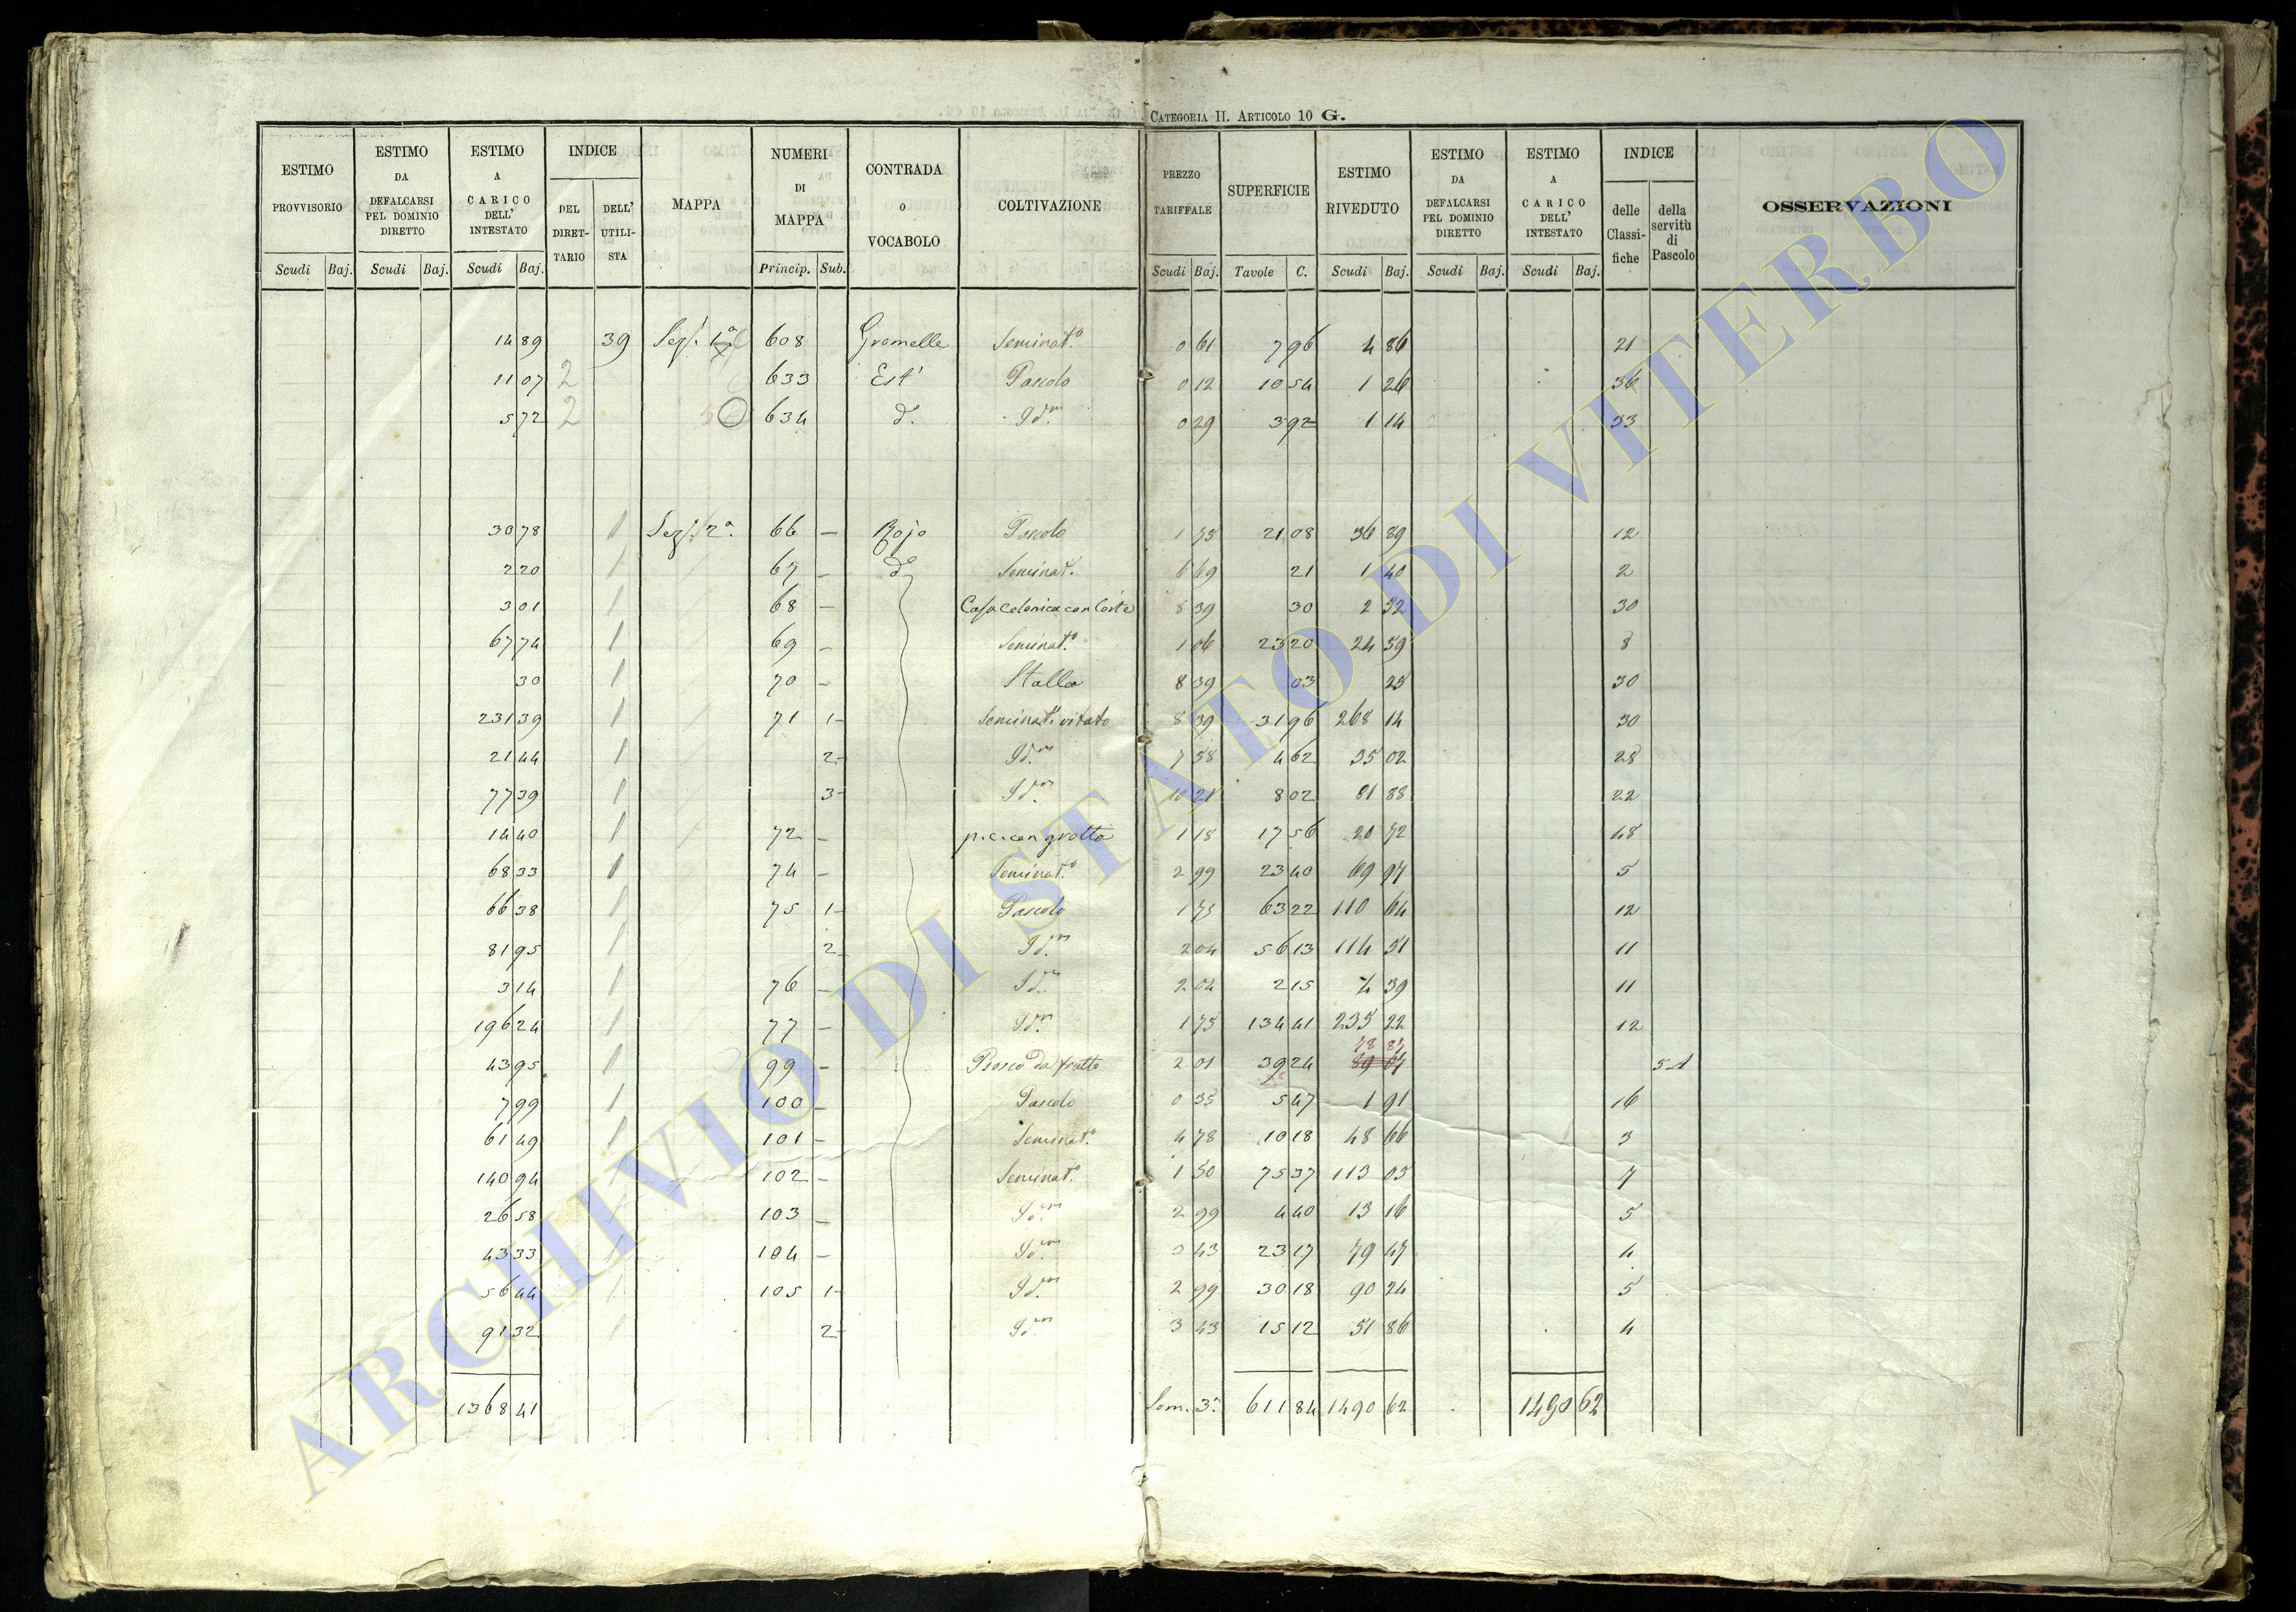 CATEGORIA II. ARTICOLO 10 G.
ESTIMO PROVVISORIO | ESTIMO DA DEFALCARSI PEL DOMINIO DIRETTO | ESTIMO A CARICO DELL' INTESTATO | INDICE DEL DIRETTARIO | DELL' UTILISTA | MAPPA | NUMERI DI MAPPA | CONTRADA O VOCABOLO | COLTIVAZIONE | PREZZO TARIFFALE | SUPERFICIE | ESTIMO RIVEDUTO | ESTIMO DA DEFALCARSI PEL DOMINIO DIRETTO | ESTIMO A CARICO DELL' INTESTATO | INDICE delle Classifiche | della servitù di Pascolo | OSSERVAZIONI
Scudi Baj. Scudi Baj. Scudi Baj. Princip. Sub. Scudi Baj. Tavole C. Scudi Baj. Scudi Baj. Scudi Baj.
14 89 39 Sez. 1ª 608 Gremelle Seminat.º 0 61 7 96 4 86 21
11 07 2 633 Est' Pascolo 0 12 10 54 1 26 36
5 72 2 634 d.º Id.m 0 29 3 92 1 14 33
30 78 1 Sez. 2ª 66 – Rojo Pascolo 1 75 21 08 36 89 12
2 20 1 67 – d.º Seminat.º 6 69 21 1 40 2
3 01 1 68 – Casa Colonica con Corte 8 39 30 2 52 30
67 74 1 69 – Seminat.º 1 06 23 20 24 59 8
30 1 70 – Stalla 8 39 03 25 30
231 39 1 71 1– Seminat.º vitato 8 39 31 96 268 14 30
21 44 1 2– Id.m 7 58 4 62 35 02 28
77 39 1 3– Id.m 10 21 8 02 81 88 22
14 40 1 72 – p.c. con grotta 1 18 17 56 20 72 48
68 33 1 74 – Seminat.º 2 99 23 40 69 97 5
66 38 1 75 1– Pascolo 1 75 63 22 110 64 12
81 95 1 2 Id.m 2 04 56 13 114 51 11
3 14 1 76 – Id.m 2 04 2 15 4 39 11
196 24 1 77 – Id.m 1 75 134 41 235 22 12
78 87
43 95 1 99 – Bosco da frutto 2 01 39 24 5 1
7 99 1 100 – Pascolo 0 35 5 47 1 91 16
61 49 1 101 – Seminat.º 4 78 10 18 48 66 3
140 94 1 102 – Seminat.º 1 50 75 37 113 05 7
26 58 1 103 – Id.m 2 99 4 40 13 16 5
43 33 1 104 – Id.m 3 43 23 17 79 47 4
56 44 1 105 1– Id.m 2 99 30 18 90 24 5
91 32 1 2– Id.m 3 43 15 12 51 86 4
1368 41 Som. 3ª 611 84 1490 62 1490 62
ARCHIVIO DI STATO DI VITERBO